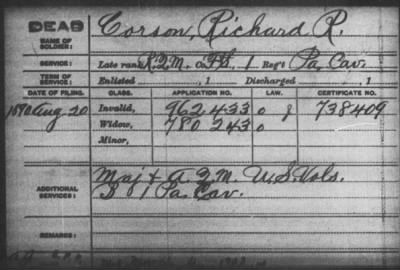 DEAD Corson, Richard R.
NAME OF SOLDIER:
SERVICE: Late rank R.Q.M. 1 Reg't Pa. Cav.
TERM OF SERVICE: Enlisted , 1 Discharged , 1
DATE OF FILING. CLASS. APPLICATION NO. LAW. CERTIFICATE NO.
1890 Aug. 20 Invalid, 962433 738409
Widow, 780243
Minor,
ADDITIONAL SERVICES: Maj & A.Q.M. U.S. Vols.
1 Pa. Cav.
REMARKS: